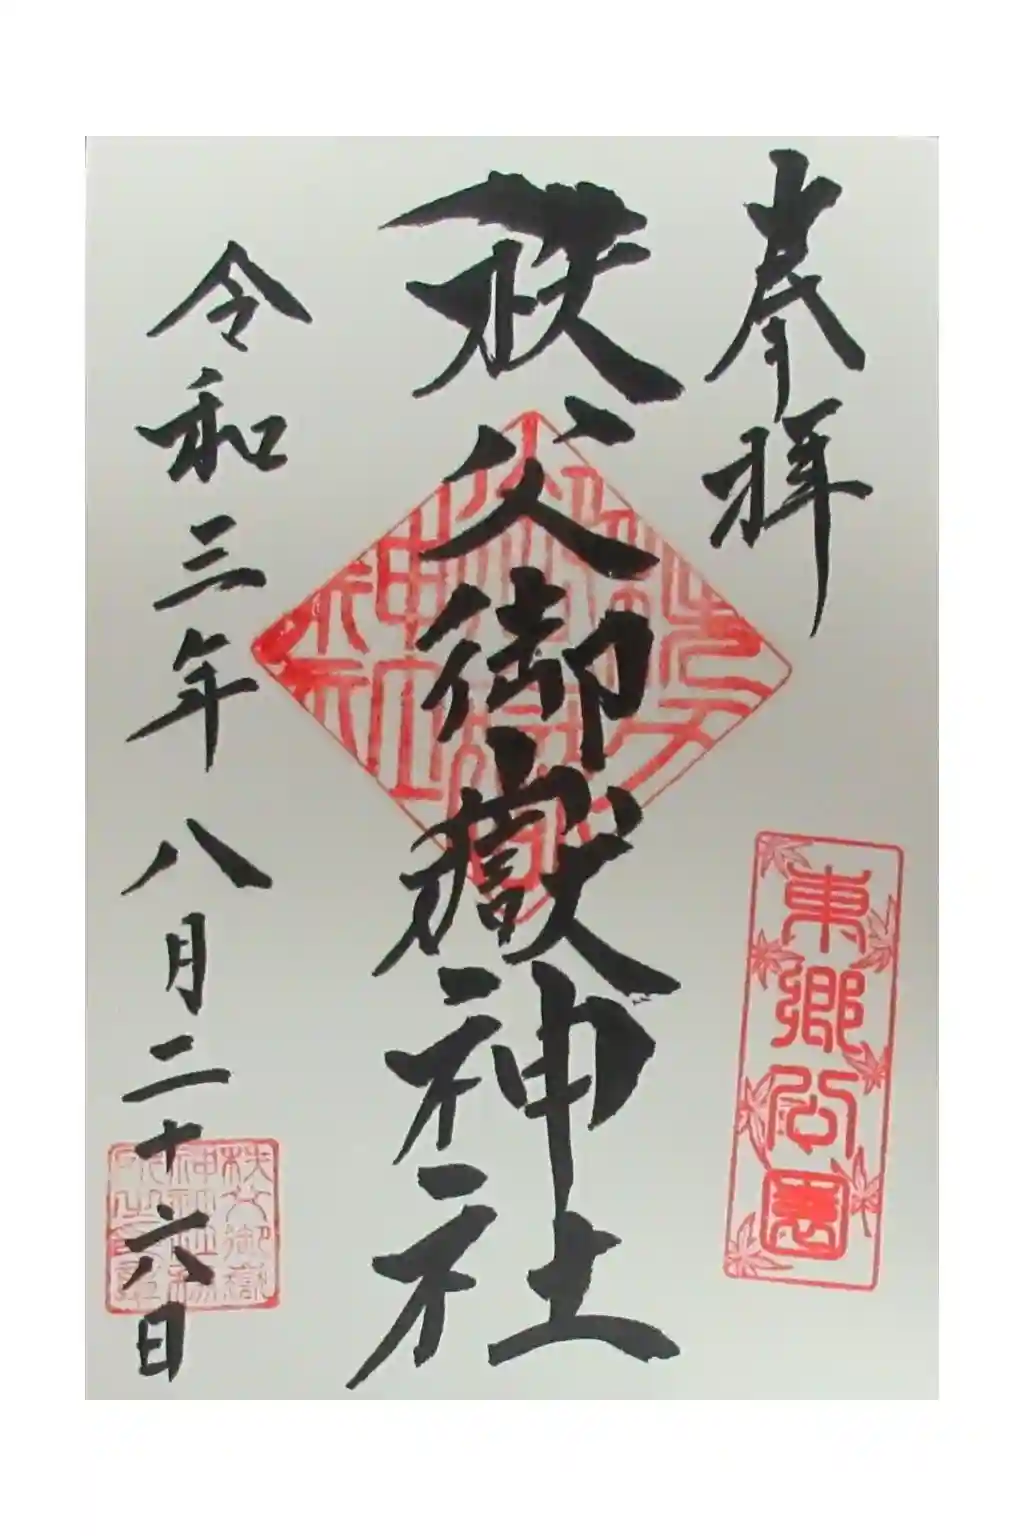 奉拝
東郷公園
秩父御嶽神社
秩父御嶽神社
令和三年八月二十六日